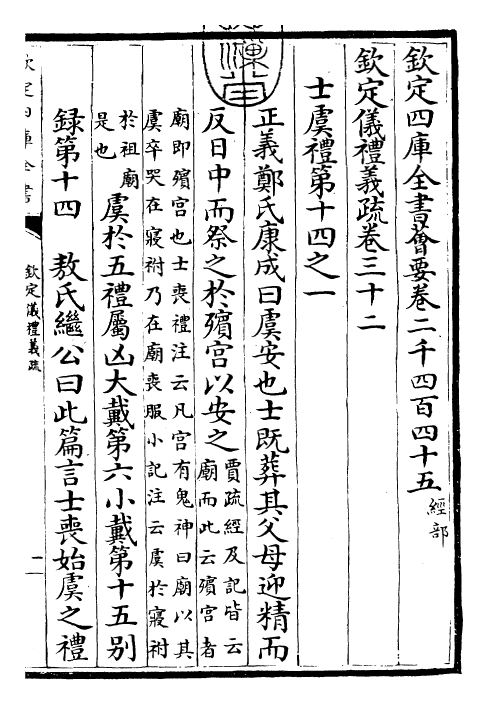 欽定四庫全書薈要卷二千四百四十五 經部
欽定儀禮義疏卷三十二
士虞禮第十四之一
正義鄭氏康成曰虞安也士既葬其父母迎精而
反日中而祭之於殯宮以安之 賈疏經及記皆云
廟而此云殯宮者
廟即殯宮也士喪禮注云凡宮有鬼神曰廟以其
虞卒哭在寢祔乃在廟喪服小記注云虞於寢祔
於祖廟
是也
虞於五禮屬凶大戴第六小戴第十五别
録第十四 敖氏繼公曰此篇言士喪始虞之禮
欽定四庫全書
欽定儀禮義疏
一